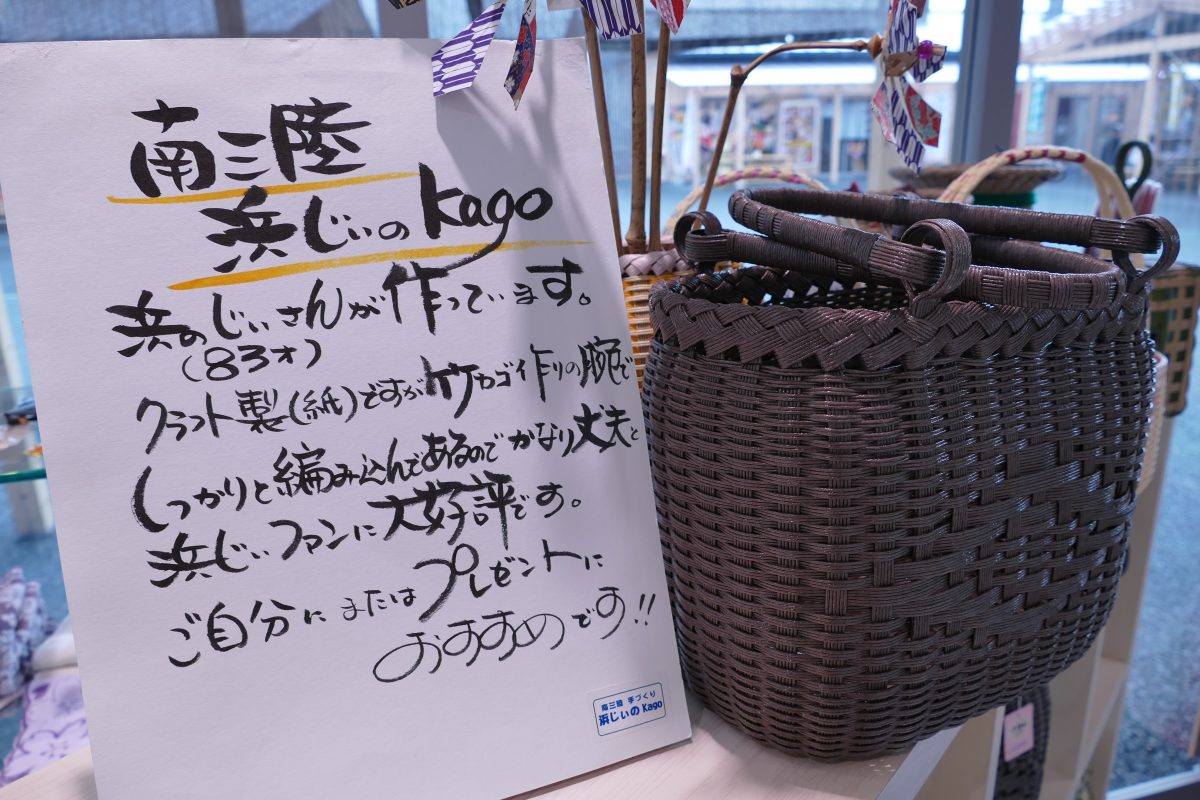 南三陸
浜じぃのkago
浜のじぃさんが作っています。
(83才)
クラフト製(紙)ですが竹カゴ作りの腕で
しっかりと編み込んであるのでかなり丈夫と
浜じぃファンに大好評です。
ご自分にまたはプレゼントに
おすすめです!!
南三陸 手づくり
浜じぃのKago